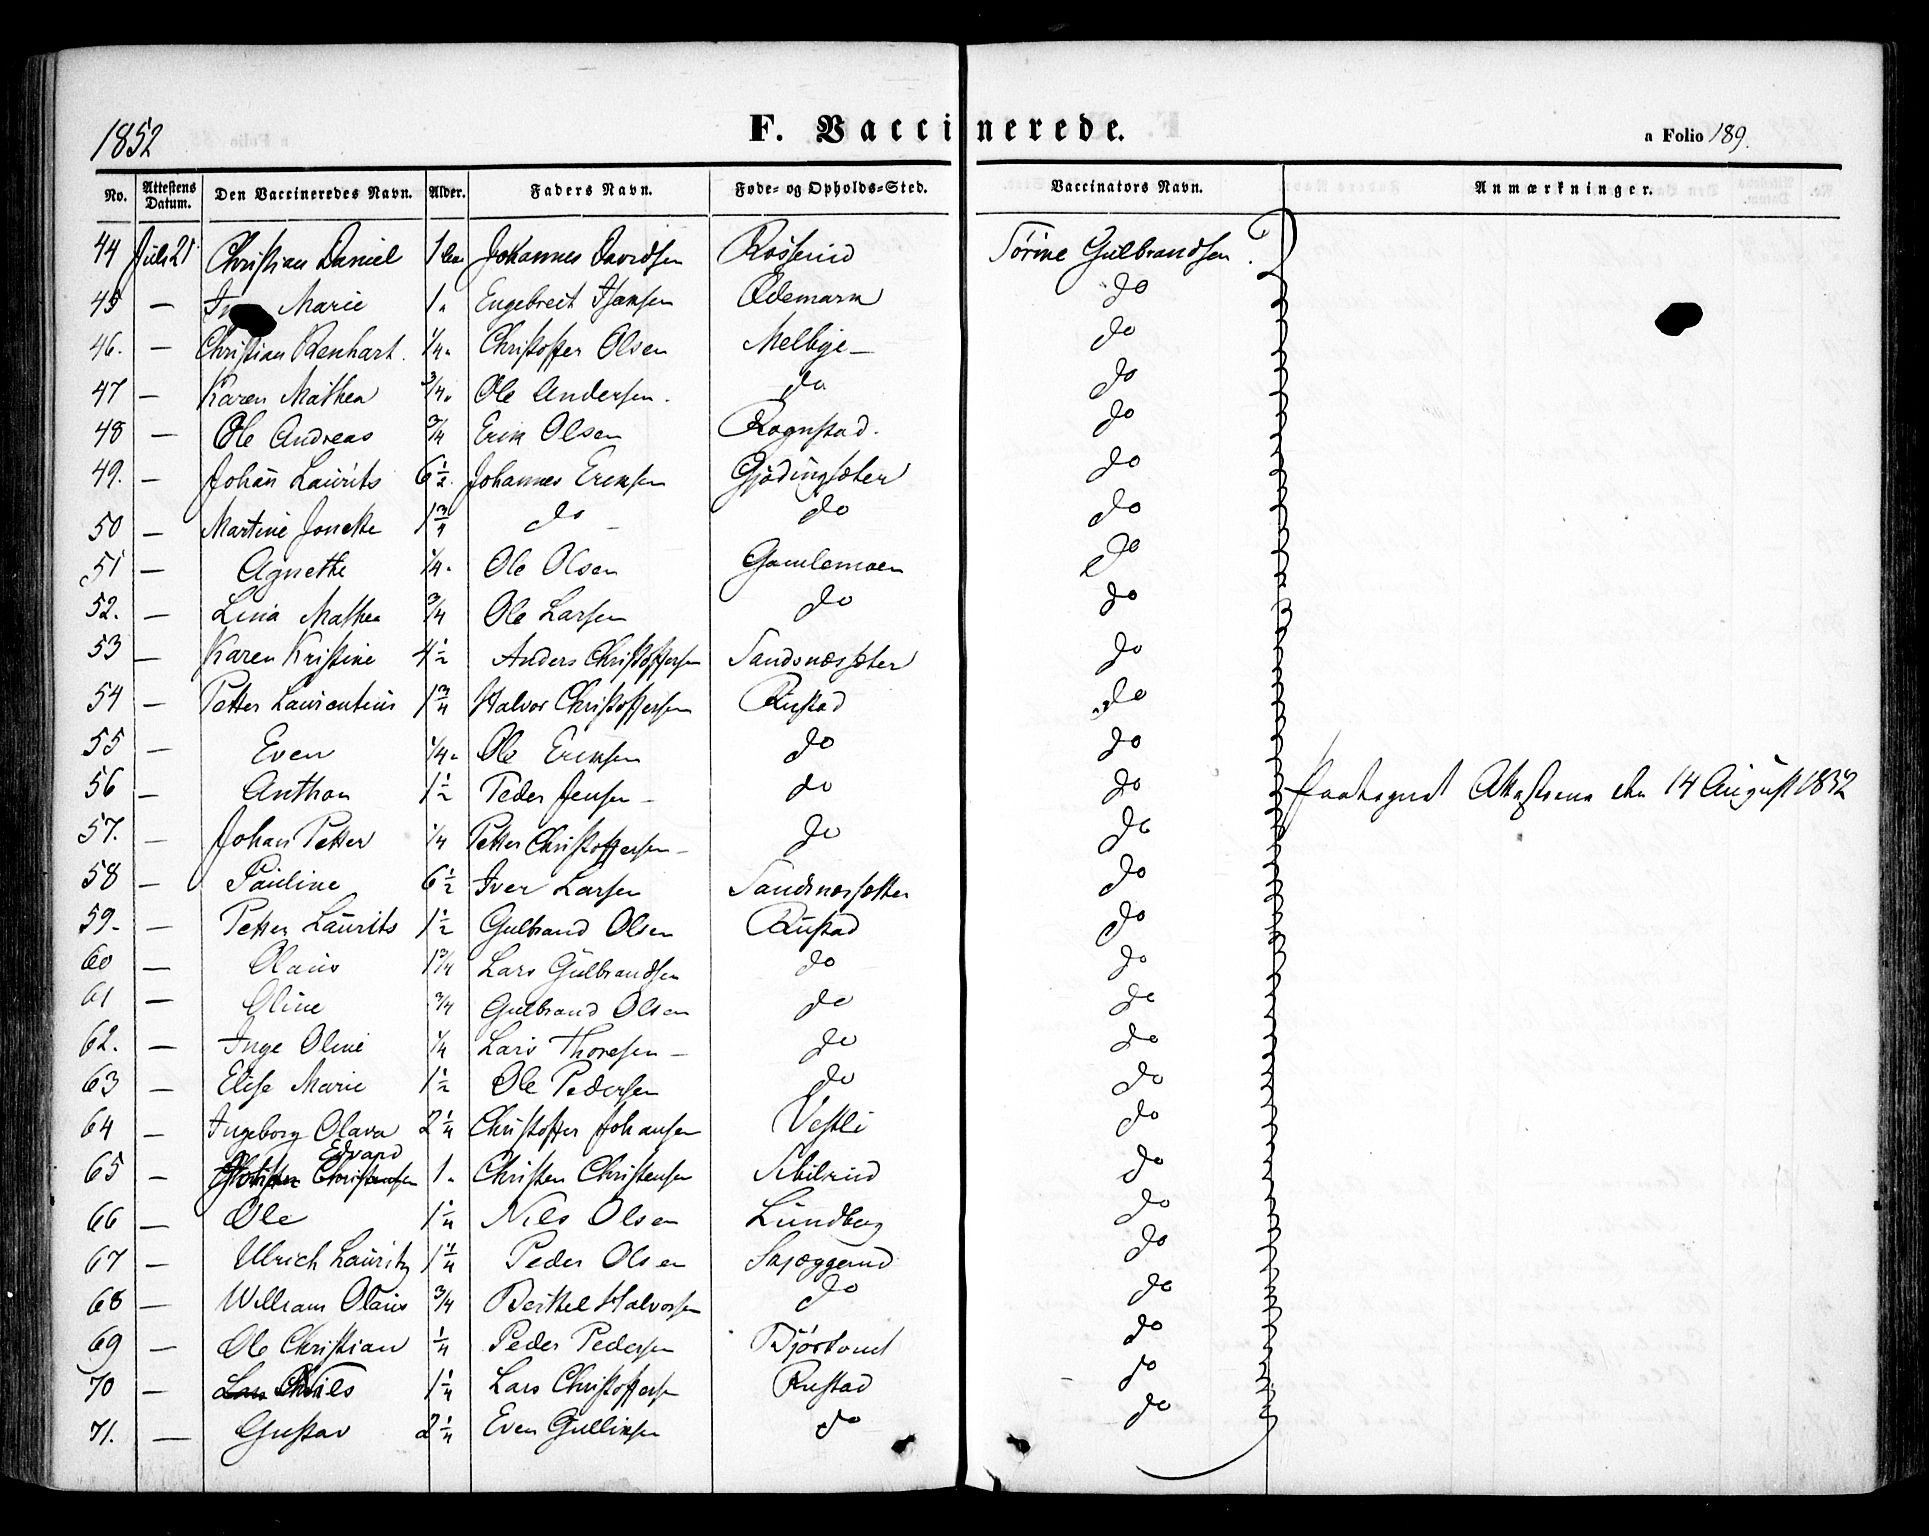 1852 F. Vaccinerede. a Folio 189.
No. Attestens Datum. Den Vaccineredes Navn. Alder. Faders Navn. Føde- og Opholds-Sted. Vaccinators Navn. Anmærkninger.
44 Juli 21 Christian Daniel 1 Johannes Davidsen Rosserud Sørine Gulbrandsen
45 — Marie 1 Engebret Hansen Ødemark do
46. — Christian Benhart. 1/4 Christoffer Olsen Melbye — do
47 — Karen Mathea 3/4 Ole Andersen. do do
48 — Ole Andreas 3/4 Erik Olsen Rognstad. do
49. — Johan Laurits 6 1/2 Johannes Eriksen Gjødingsæter do
50 — Martine Jonette 1 3/4 do — do do
51 — Agnethe 1/4 Ole Olsen Gamlemoen do
52. — Lina Mathea 3/4 Ole Larsen do do
53 — Karen Kristine 4 1/2 Anders Christoffersen Sandsnæssæter do
54 — Petter Laurentius 1 3/4 Halvor Christoffersen Rustad do
55 — Even 1/4 Ole Eriksen do do
56 — Anthon 1 1/2 Peder Jensen — do do Paategnet Attesterne den 14 August 1852
57. — Johan Petter 1/4 Petter Christoffersen — do do
58 — Pauline 6 1/2 Iver Larsen Sandsnessætter do
59. — Petter Laurits 1 1/2 Gulbrand Olsen Rustad do
60 — Olaus 1 3/4 Lars Gulbrandsen do do
61 — Oline 3/4 Gulbrand Olsen do do
62. — Inge Oline 1/4 Lars Thoresen — do do
63 — Elise Marie 1 1/2 Ole Pedersen do do
64 — Ingeborg Olava 2 1/4 Christoffer Johansen Vestli do
Edvard
65 — Christensen 1 Christen Christensen do
66 — Ole 1 1/4 Nils Olsen Lundberg do
67 — Ulrich Lauritz 1 1/4 Peder Olsen Skjæggerud do
68 — William Olaus 3/4 Berthel Halvorsen do do
69 — Ole Christian 1/4 Peder Pedersen do
70 — Lars Nils 1 1/4 Lars Christoffersen Rustad do
71. — Gustav 2 1/4 Even Gulliksen do do